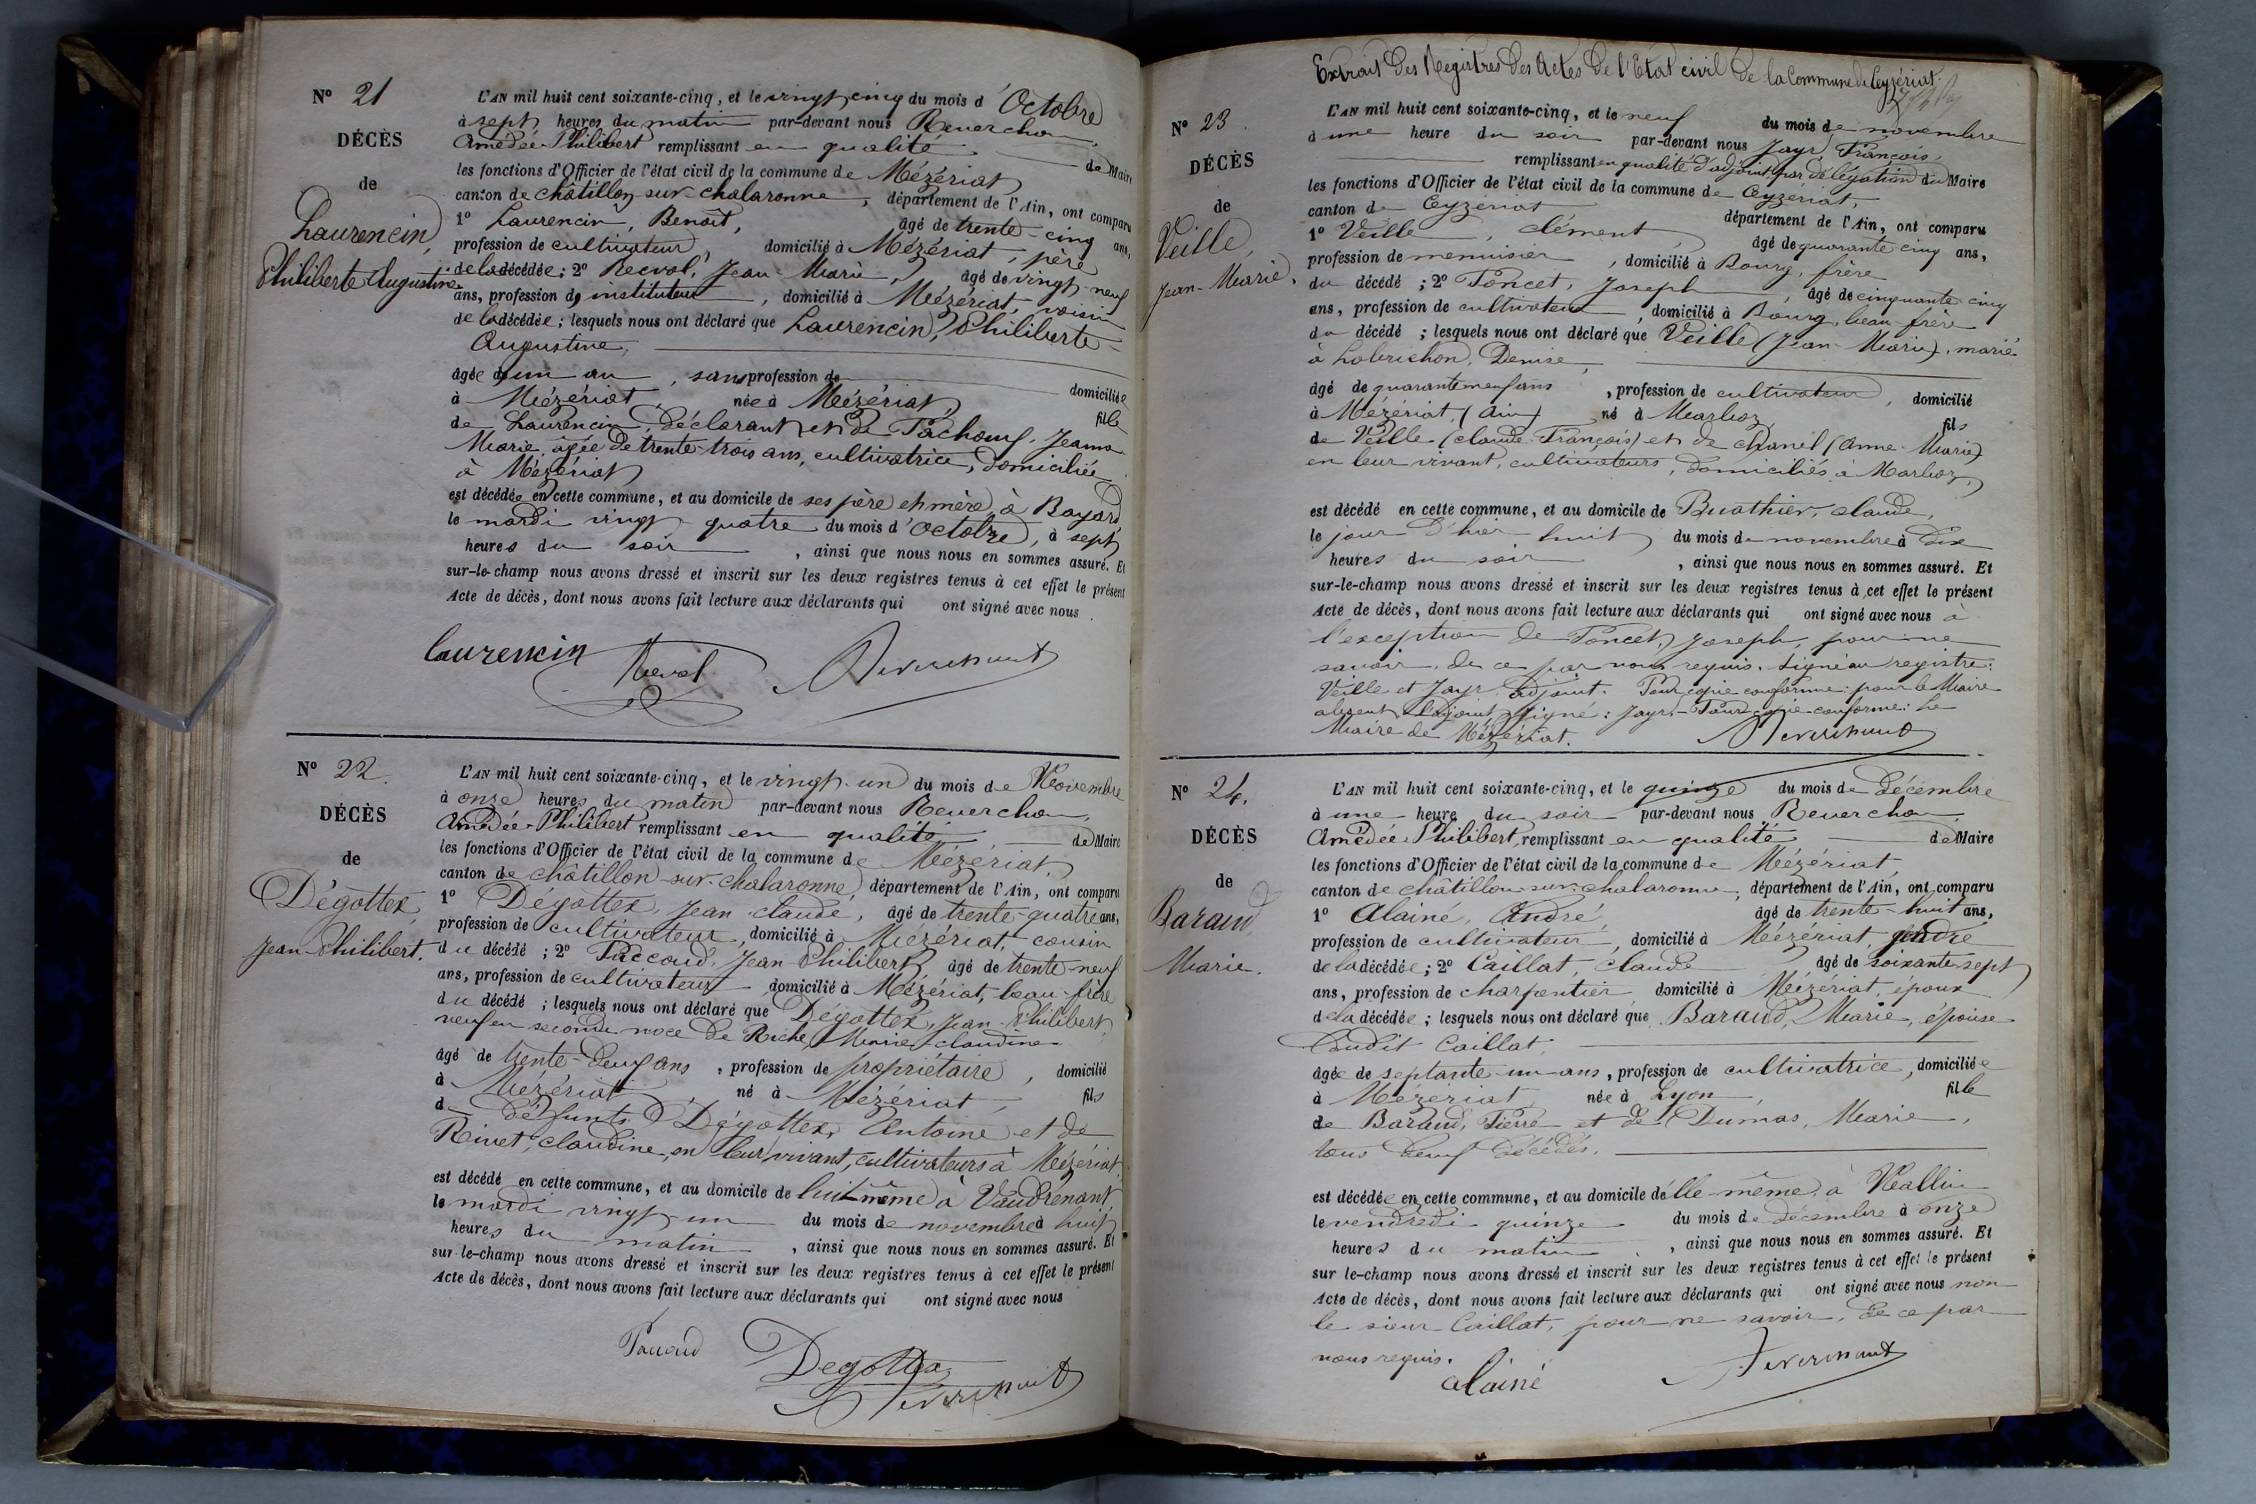 N° 21
DÉCÈS
de
Laurencin,
Philiberte Augustine
L'AN mil huit cent soixante-cinq, et le vingt cinq du mois d'Octobre
à sept heures du matin par-devant nous
Amédée Philibert remplissant en qualité de Maire
les fonctions d'Officier de l'état civil de la commune de Mézériat,
canton de châtillon sur chalaronne, département de l'Ain, ont comparu
1° Laurencin, Benoît, âgé de trente-cinq ans,
profession de cultivateur, domicilié à Mézériat, père
de la décédée; 2° Jean-Marie, âgé de vingt-neuf
ans, profession de instituteur, domicilié à Mézériat, voisin
de la décédée; lesquels nous ont déclaré que Laurencin, Philiberte
Augustine,
âgée de un an, sans profession de domiciliée
à Mézériat, née à Mézériat, fille
de Laurencin, déclarant et de Jeanne
Marie, âgée de trente-trois ans, cultivatrice, domiciliée
à Mézériat,
est décédée en cette commune, et au domicile de ses père et mère, à Bayard,
le mardi vingt-quatre du mois d'Octobre, à sept
heures du soir, ainsi que nous nous en sommes assuré. Et
sur-le-champ nous avons dressé et inscrit sur les deux registres tenus à cet effet le présent
Acte de décès, dont nous avons fait lecture aux déclarants qui ont signé avec nous.
Laurencin
N° 22.
DÉCÈS
de
Dégottex,
Jean-Philibert.
L'AN mil huit cent soixante-cinq, et le vingt-un du mois de Novembre
à onze heures du matin par-devant nous
Amédée-Philibert remplissant en qualité de Maire
les fonctions d'Officier de l'état civil de la commune de Mézériat,
canton de châtillon-sur-chalaronne, département de l'Ain, ont comparu
1° Dégottex, Jean-claude, âgé de trente-quatre ans,
profession de cultivateur, domicilié à Mézériat, cousin
du décédé; 2° Paccoud, Jean Philibert, âgé de trente-neuf
ans, profession de cultivateur domicilié à Mézériat, beau-frère
du décédé; lesquels nous ont déclaré que Dégottex, Jean-Philibert,
veuf en seconde noce de Riche, Marie-claudine
âgé de trente-deux ans, profession de propriétaire, domicilié
à Mézériat né à Mézériat, fils
de défunts Dégottex, Antoine et de
Rivet, claudine, en leur vivant, cultivateurs à Mézériat,
est décédé en cette commune, et au domicile de lui-même à Vaudrenant,
le mardi vingt-un du mois de novembre à huit
heures du matin, ainsi que nous nous en sommes assuré. Et
sur-le-champ nous avons dressé et inscrit sur les deux registres tenus à cet effet le présent
Acte de décès, dont nous avons fait lecture aux déclarants qui ont signé avec nous
Paccoud Degottex
Extrait des Registres des Actes de l'Etat civil de la Commune de Ceyzériat.
N° 23.
DÉCÈS
de
Veille,
Jean-Marie.
L'AN mil huit cent soixante-cinq, et le neuf du mois de novembre
à une heure du soir par-devant nous Jayr, François,
remplissant en qualité d'adjoint par délégation du Maire
les fonctions d'Officier de l'état civil de la commune de Ceyzériat,
canton de Ceyzériat département de l'Ain, ont comparu
1° Veille, clément, âgé de quarante cinq ans,
profession de menuisier, domicilié à Bourg, frère
du décédé; 2° Poncet, Joseph âgé de cinquante-cinq
ans, profession de cultivateur, domicilié à Bourg, beau-frère
du décédé; lesquels nous ont déclaré que Veille (Jean-Marie), marié
à Lobrichon, Denise,
âgé de quarante neuf ans, profession de cultivateur, domicilié
à Mézériat, (Ain) né à Marboz, fils
de Veille (claude-François) et de chanel (Anne-Marie)
en leur vivant, cultivateurs, domiciliés à Marboz,
est décédé en cette commune, et au domicile de Buathier, claude,
le jour d'hier huit du mois de novembre à dix
heures du soir, ainsi que nous nous en sommes assuré. Et
sur-le-champ nous avons dressé et inscrit sur les deux registres tenus à cet effet le présent
Acte de décès, dont nous avons fait lecture aux déclarants qui ont signé avec nous à
l'exception de Poncet, Joseph, pour ne
savoir, de ce par nous requis. Signé au registre:
Veille et Jayr, adjoint. Pour copie conforme: pour le Maire
absent, l'adjoint, signé: Jayr.- Pour copie conforme: Le
Maire de Mézériat.
N° 24.
DÉCÈS
de
Baraud
Marie.
L'AN mil huit cent soixante-cinq, et le quinze du mois de décembre
à une heure du soir par-devant nous
Amédée-Philibert, remplissant en qualité de Maire
les fonctions d'Officier de l'état civil de la commune de Mézériat,
canton de châtillon-sur-chalaronne, département de l'Ain, ont comparu
1° Alainé, André, âgé de trente-huit ans,
profession de cultivateur, domicilié à Mézériat, gendre
de la décédée; 2° Caillat, claude âgé de soixante-sept
ans, profession de charpentier domicilié à Mézériat, époux
de la décédée; lesquels nous ont déclaré que Baraud, Marie, épouse
dudit Caillat,
âgée de septante-un ans, profession de cultivatrice, domiciliée
à Mézériat, née à Lyon, fille
de Baraud, Pierre et de Dumas, Marie,
tous deux décédés.
est décédée en cette commune, et au domicile d'elle-même, à
le vendredi quinze du mois de décembre à onze
heures du matin, ainsi que nous nous en sommes assuré. Et
sur le-champ nous avons dressé et inscrit sur les deux registres tenus à cet effet le présent
Acte de décès, dont nous avons fait lecture aux déclarants qui ont signé avec nous non
le sieur Caillat, pour ne savoir, de ce par
nous requis.
alainé